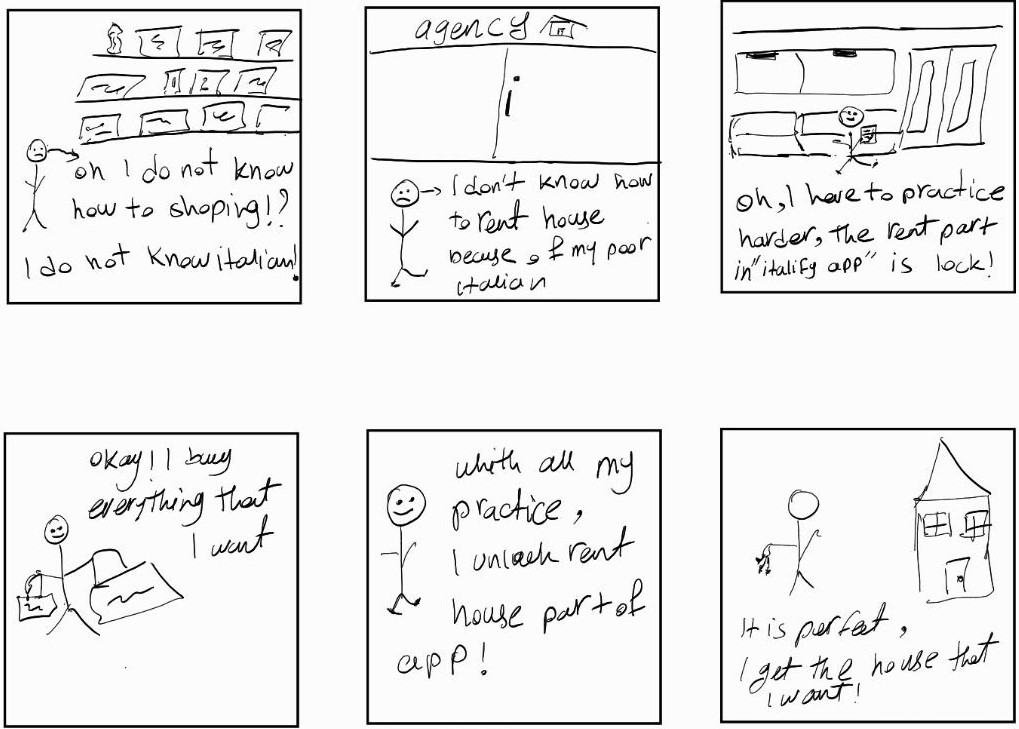 oh I do not know
how to shoping!?
I do not know italian!
agency
i
I don't know how
to rent house
becuse of my poor
italian
oh, I have to practice
harder, the rent part
in "italify app" is lock!
okay! I buy
everything that
I want
whith all my
practice,
I unlock rent
house part of
app!
It is perfect,
I get the house that
I want!